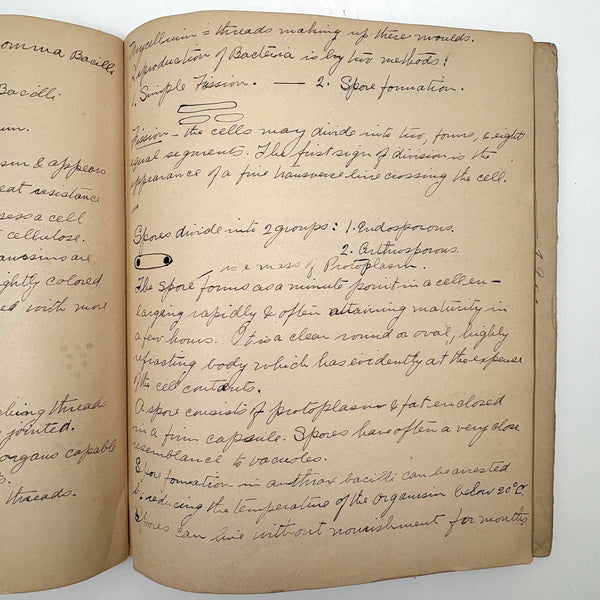 omma Bacilli
Bacilli.
um.
sm & appears
eat resistance
sess a cell
cellulose.
are
ightly colored
ed with more
threads
jointed.
organs capable
ts.
threads.
Mycellium = threads making up these moulds.
Reproduction of Bacteria is by two methods:
1. Simple Fission. — 2. Spore formation.
Fission – the cells may divide into two, fours, & eight
equal segments. The first sign of division is the
appearance of a fine transverse line crossing the cell.
Spores divide into 2 groups: 1. Endosporous.
2. Arthrosporous.
is a mass of Protoplasm.
The spore forms as a minute point in a cell en-
larging rapidly & often attaining maturity in
a few hours. It is a clear round or oval, highly
refracting body which has evidently at the expense
of the cell contants.
A spore consists of protoplasm & fat enclosed
in a firm capsule. Spores have often a very close
resemblance to vacuoles.
Spore formation in anthrax bacilli can be arrested
by reducing the temperature of the organism below 20°C.
Spores can live without nourishment for months